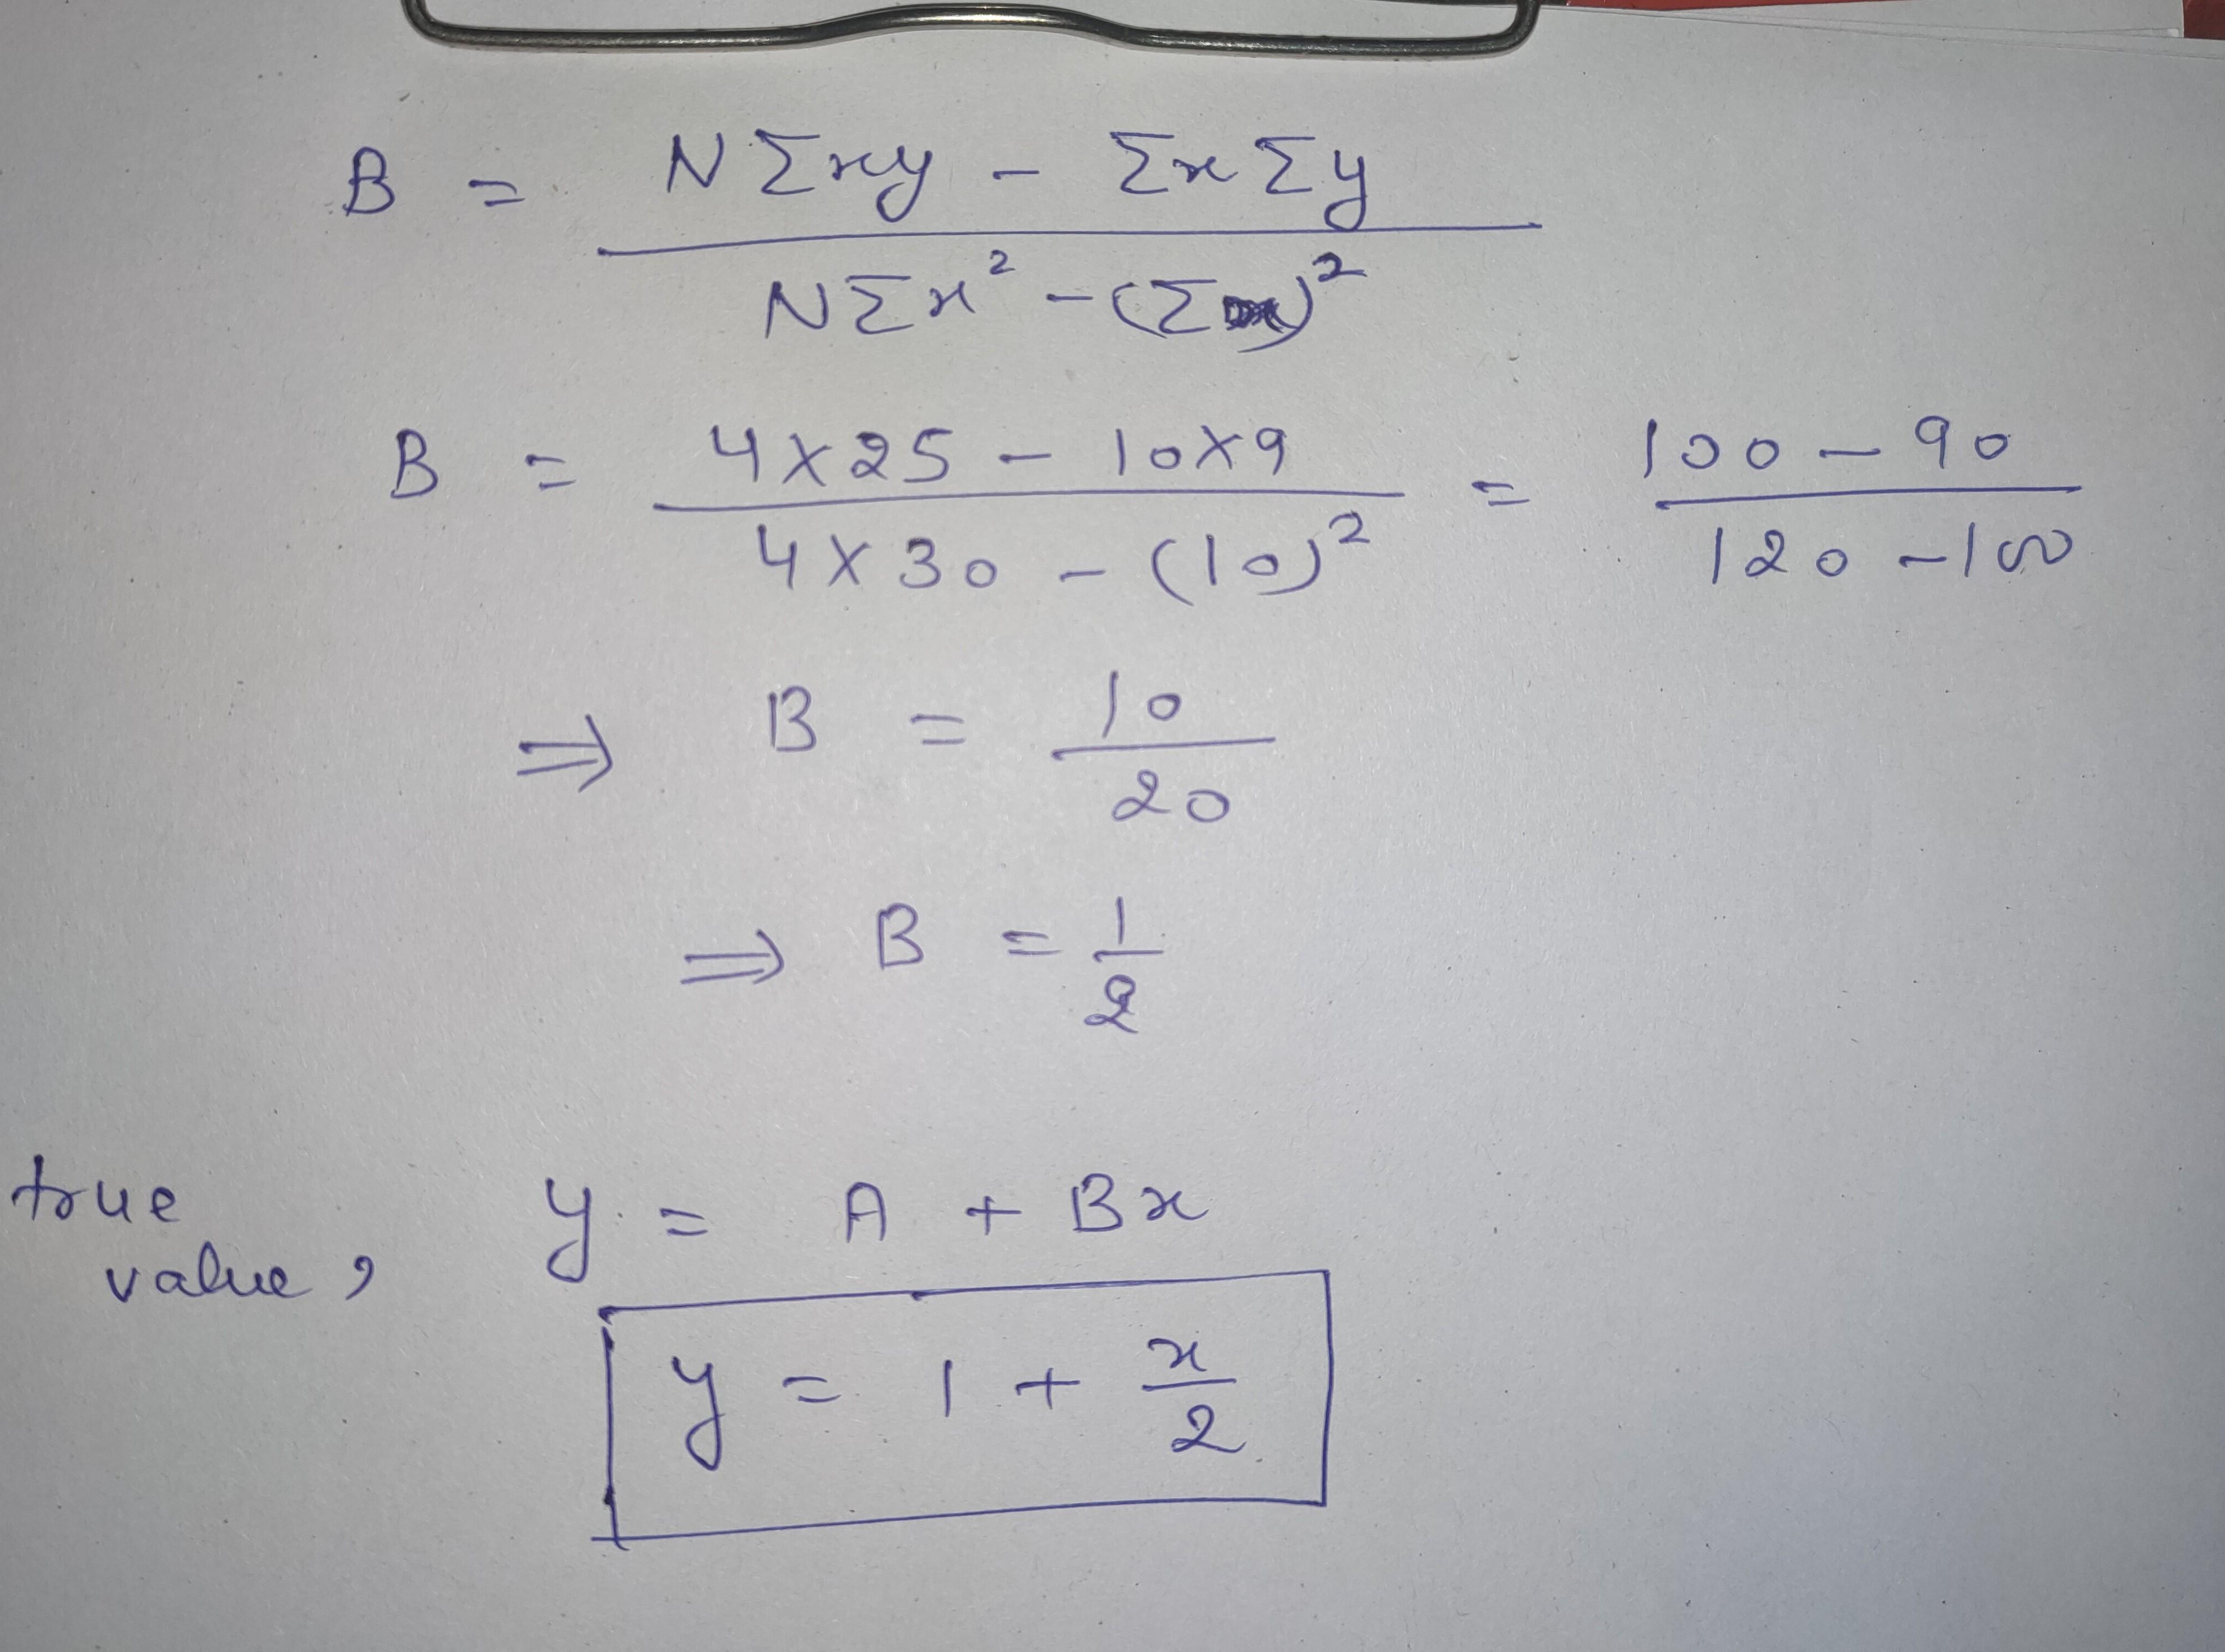 B = NΣxy - ΣxΣy / NΣx² - (Σx)²
B = 4×25 - 10×9 / 4×30 - (10)² = 100 - 90 / 120 - 100
⇒ B = 10 / 20
⇒ B = 1 / 2
true value, y = A + Bx
y = 1 + x / 2